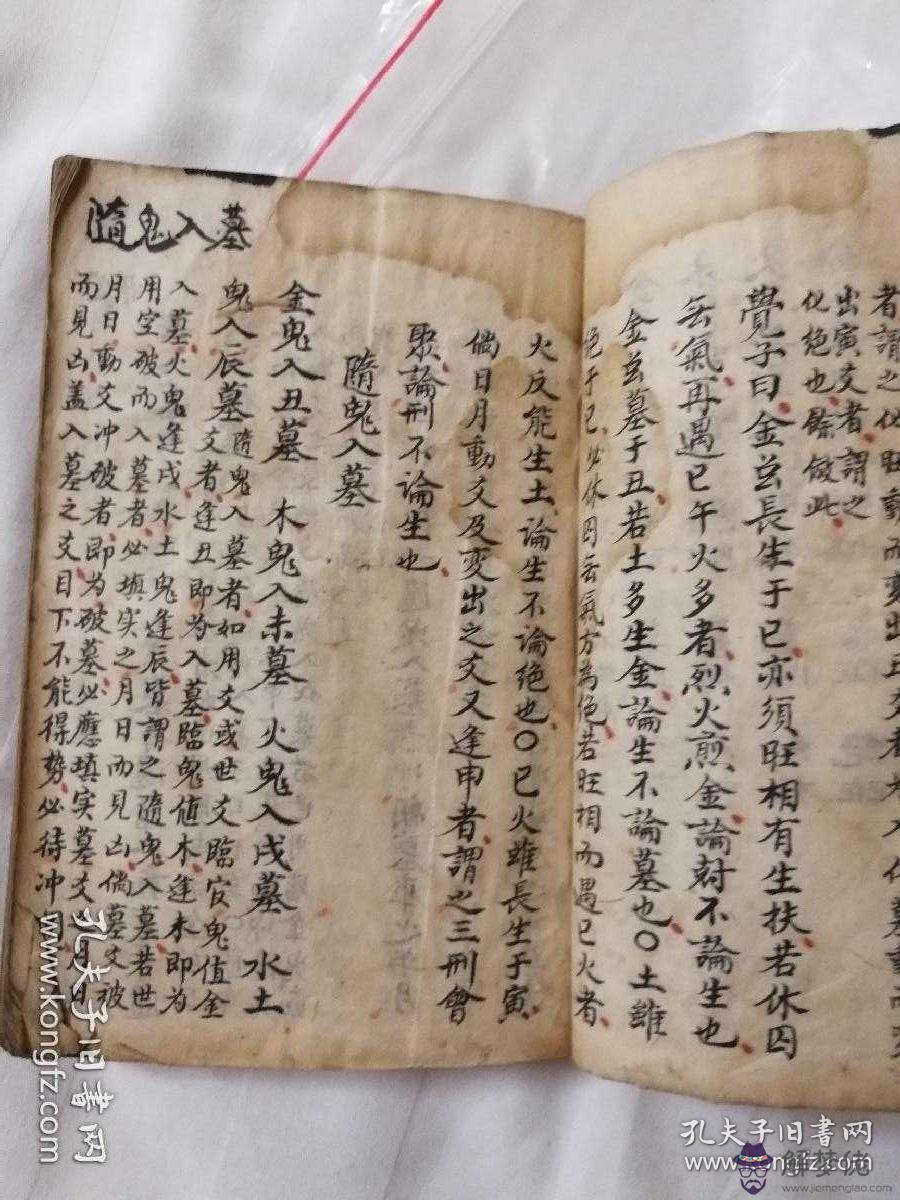 者謂之化旺動而變出丑爻者
出寅爻者謂之
化絕也餘倣此
覺子曰金並長生于巳亦須旺相有生扶若休囚
無氣再遇巳午火多者烈火煎金論尅不論生也
金並墓于丑若土多生金論生不論墓也〇土雖
絕于巳必休囚無氣方為絕若旺相而遇巳火者
火反能生土論生不論絕也〇巳火雖長生于寅
倘日月動爻及変出之爻又逢申者謂之三刑會
聚論刑不論生也
隨鬼入墓
金鬼入丑墓 木鬼入未墓 火鬼入戌墓 水土
鬼入辰墓 隨鬼入墓者如用爻或世爻臨官鬼值金
爻者逢丑即為入墓臨鬼值木逢未即為
入墓火鬼逢戌水土鬼逢辰皆謂之隨鬼入墓若世
用空破而入墓者必填实之月日而見凶倘墓爻被
月日動爻冲破者即為破墓必應填实墓爻之月日
而見凶盖入墓之爻目下不能得势必待冲開
隨鬼入墓
孔夫子旧书网
www.kongfz.com
孔夫子旧书网
www.kongfz.com
解梦佬
www.jiemenglao.com